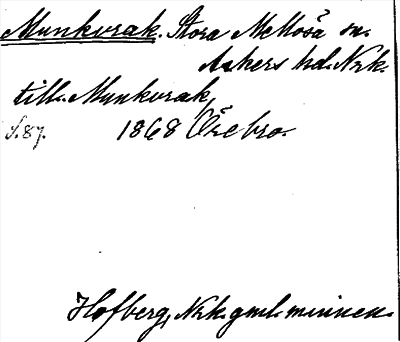 Munkvrak. Stora Mellösa sn.
Askers hd. Nrk.
till. Munkvrak,
S. 87. 1868 Örebro.
Hofberg, Nrk. gml. minnen.